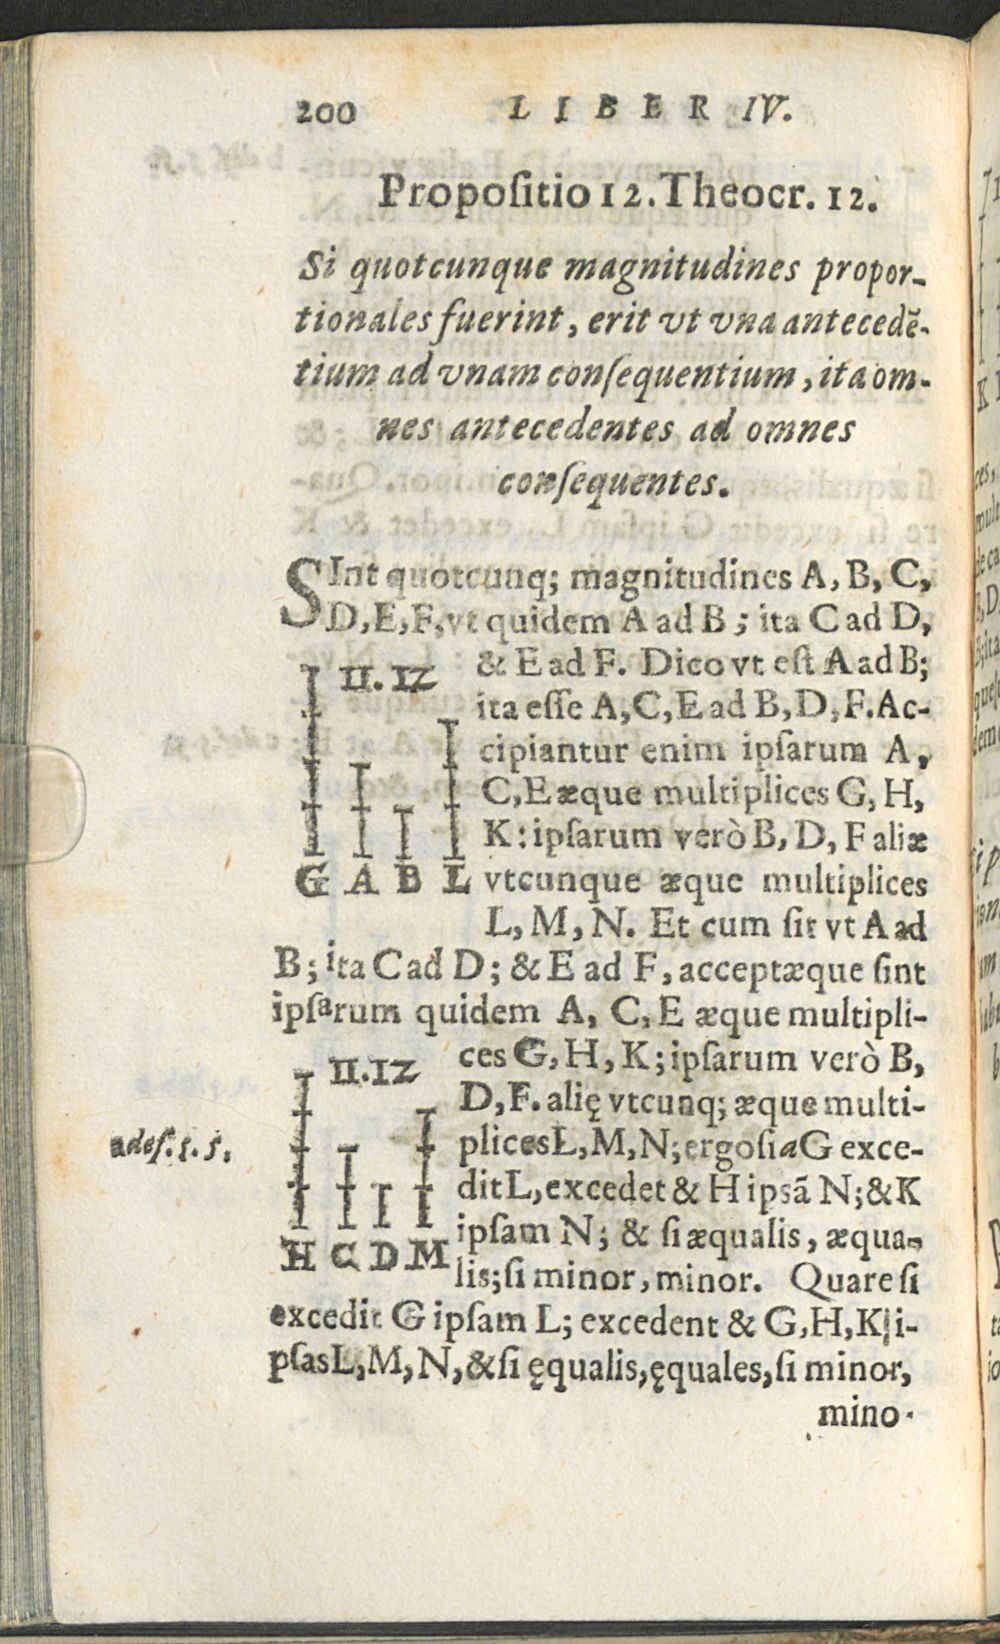 200 LIBER IV.
Propoſitio 12. Theocr. 12.
Si quotcunque magnitudines propor-
tionales fuerint, erit vt vna antecedẽ-
tium ad vnam conſequentium, ita om-
nes antecedentes ad omnes
conſequentes.
SInt quotcunq; magnitudines A, B, C,
D, E, F, vt quidem A ad B; ita C ad D,
& E ad F. Dico vt eſt A ad B;
ita eſſe A, C, E ad B, D, F. Ac-
cipiantur enim ipſarum A,
C, E æque multiplices G, H,
K: ipſarum verò B, D, F aliæ
vtcunque æque multiplices
L, M, N. Et cum ſit vt A ad
II. 12
G A B L
B; ita C ad D; & E ad F, acceptæque ſint
ipſarum quidem A, C, E æque multipli-
ces G, H, K; ipſarum verò B,
D, F. alię vtcunq; æque multi-
plices L, M, N; ergo ſi a G exce-
dit L, excedet & H ipsã N; & K
ipſam N; & ſi æqualis, æqua-
lis; ſi minor, minor. Quare ſi
II. 12
H C D M
adef. 5. 5.
excedit G ipſam L; excedent & G, H, K i-
pſas L, M, N, & ſi ęqualis, ęquales, ſi minor,
mino-